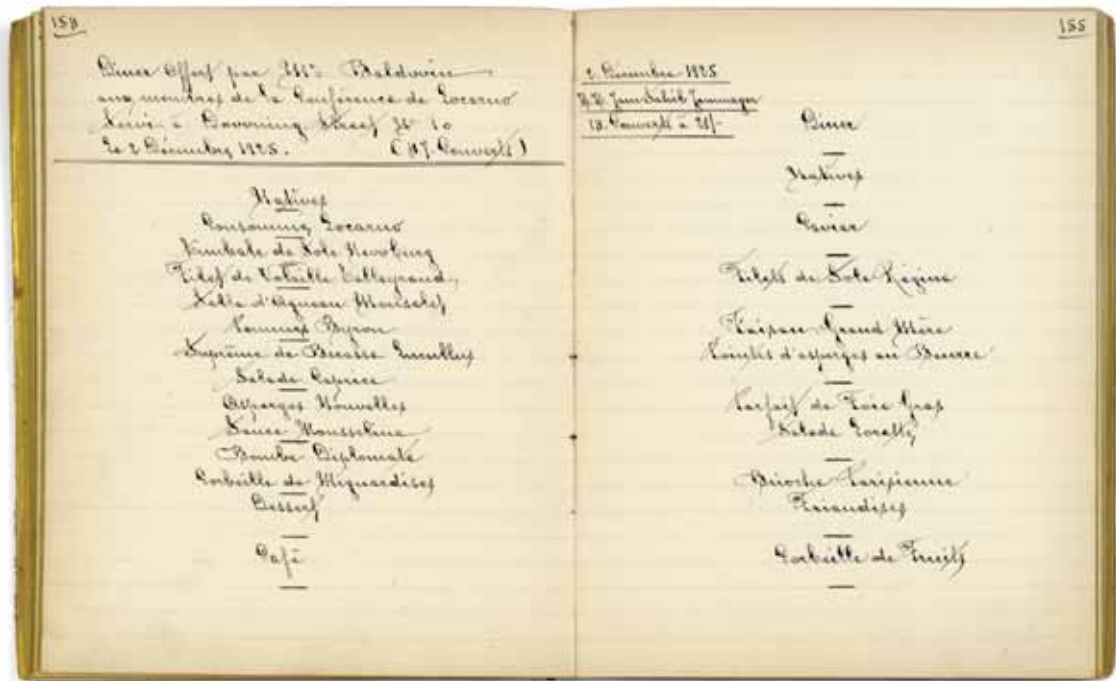 154
Diner Offert par Mr. Baldwin
aux membres de la Conférence de Locarno
Servi à Downing Street No 10
Le 2 Décembre 1925. (17 Couverts)
Natives
Consommé Locarno
Timbale de Sole Newburg
Filet de Volaille Talleyrand
Selle d'Agneau
Pommes Byron
Suprême de Bécasse Lucullus
Salade Caprice
Asperges Nouvelles
Sauce Mousseline
Bombe Diplomate
Corbeille de Mignardises
Dessert
Café
155
2 Décembre 1925
18 Couverts à 21/-
Diner
Natives
Caviar
Filets de Sole Régina
Faisan Grand Mère
Pointes d'asperges au Beurre
Parfait de Foie Gras
Salade Lorette
Brioche Parisienne
Friandises
Corbeille de Fruits